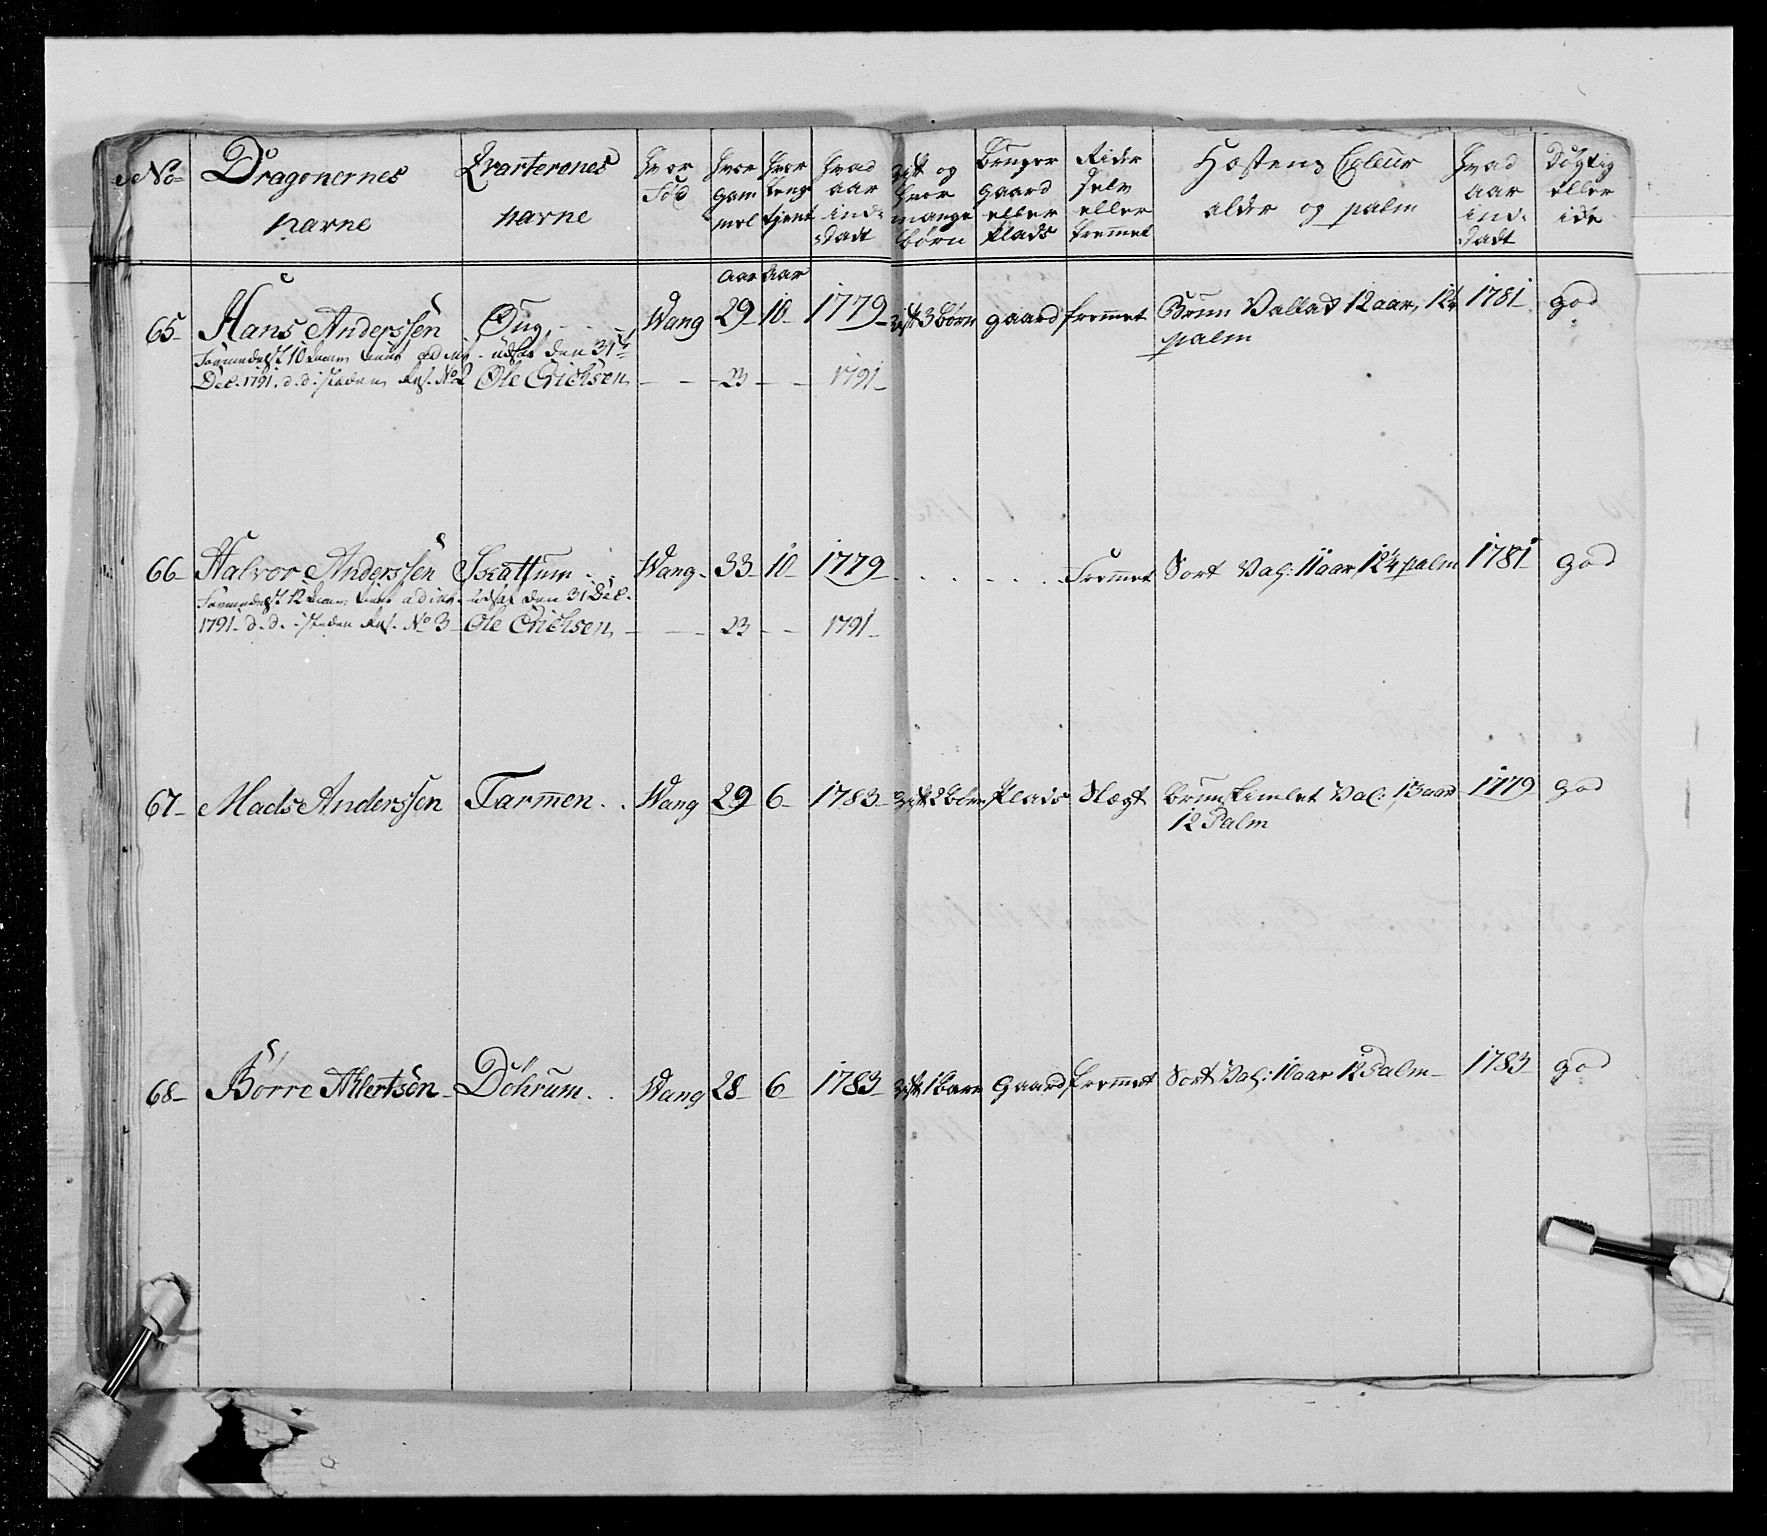 No Dragonernes navne Qvarterenes navne hvor Fød hvor gam mel hvor lenge tjent hvad aar ind: dadt gift og hvor mange børn bruger gaard eller plads Rider selv eller fremmet Hæstens Coleur alder og palm hvad aar ind: dadt Dögtig eller ide
aar aar
65 Hans Anderssen Øug Wang 29 10 1779 gift 3 børn gaard fremmet Brun Vallak 12 aar, 12¼ palm 1781 god
udsat den 31te
Dec. 1791. d. d. isteden No 2 Ole Erichsen 23 1791
66 Halvor Anderssen Skattum Wang 33 10 1779 Fremmet Sort Val: 11 aar 12¼ palm 1781 god
udsat den 31 Dec.
1791 d. d. isteden No 3 Ole Erichsen 23 1791
67 Mads Anderssen Farmen Wang 29 6 1783 gift 2 børn Plads Slægt brunskimlet Val: 13 aar 12 Palm 1779 god
68 Børre Ahlertsen Döhrum Wang 28 6 1783 gift 1 barn Gaard fremmet Sort Val: 11 aar 12 Palm 1783 god